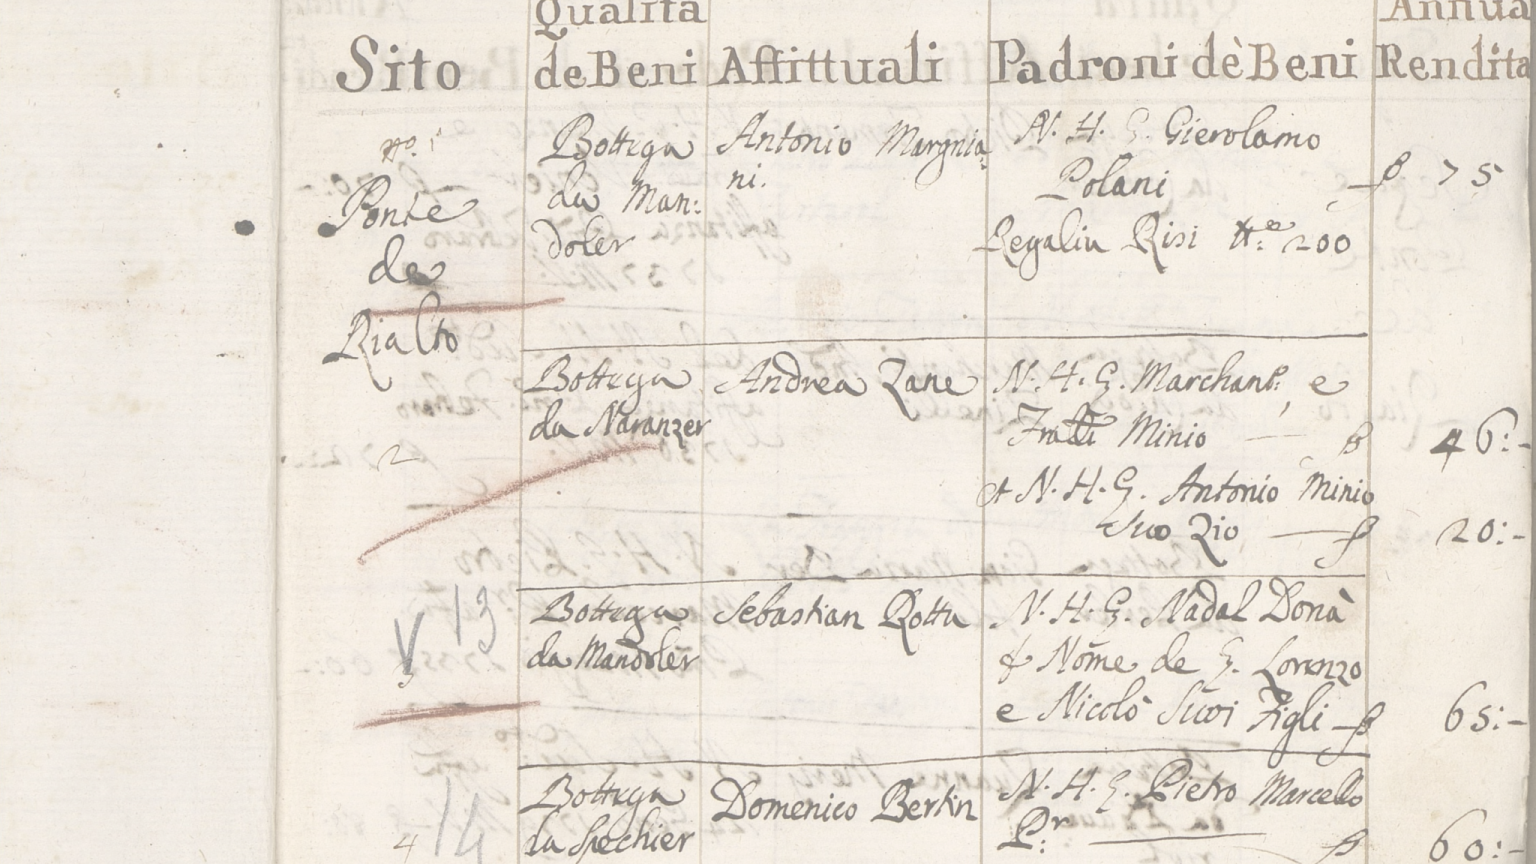 Sito
Qualità
de Beni
Affittuali
Padroni dè Beni
Annua
Rendita
No. 1
Ponte
de
Rialto
Bottega
da Man:
doler
Antonio Margnia:
ni.
N. H. G. Gierolamo
Polani
Regalia Risi 200
75
2
Bottega
da Naranzer
Andrea Zane
N. H. G. Marchant. e
Fratti Minio
46:-
et N. H. G. Antonio Minio
Suo Zio
20:-
3
13
Bottega
da Mandoler
Sebastian Rotta
N. H. G. Nadal Donà
Nome de G. Lorenzo
e Nicolò Suoi Figli
65:-
4
14
Bottega
da Spechier
Domenico Bertin
N. H. G. Pietro Marcello
P.r
60:-